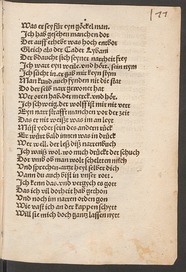 177
Was er sy für eyn göckel man.
Ich hab gesehen manchen dor
Der auff erhebt was hoch entbor
Gleich als der Ceder Lybani
Der bdaucht sich seyner narrheit frey
Ich wart eyn weile, vnd hört, sein nym
Ich sucht in, er gab mir keyn stym
Man kund auch fynden nit die statt
Do der selb narr gewonet hat
Wer oren hab, der merck vnd hör,
Ich schweig, der wolff ist mir nit verr
Eyn narr strafft manchen vor der zeit
Das er nit weißt was im an leyt
Müst yeder sein des andern rück
Er würt bald innen was in drück
Wer well, der leß diß narrenbuch
Ich weiß wol, wo mich drückt der schuch
Dor vmb ob man wolt schelten mich
Vnd sprechen, artzt heyl selber dich
Wann du auch bist in vnser rott,
Ich kenn das, vnd vergych es gott
Das ich vil dorheit hab gethon
Vnd noch im narren orden gon
Wie vast ich an der kappen schytt
Will sie mich doch gantz lassen nytt